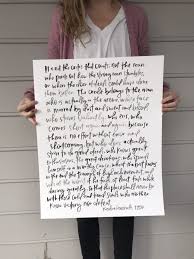 It is not the critic that counts, not the man
who points out how the strong man stumbles,
or when the doer of deeds could have done
them better. The credit belongs to the man
who is actually in the arena, whose face
is marred by dust and sweat and blood
who strives valiantly, who errs, who
comes short again and again because there
is no effort without error and
shortcoming; but who does actually
strive to do the deeds, who knows great
enthusiasms, the great devotions, who spends
himself in a worthy cause, who at the best knows
in the end the triumph of high achievement, and
who at the worst, if he fails, at least fails while
daring greatly, so that his place shall never be
with those cold and timid souls who neither
know victory nor defeat.
Roosevelt, 1910